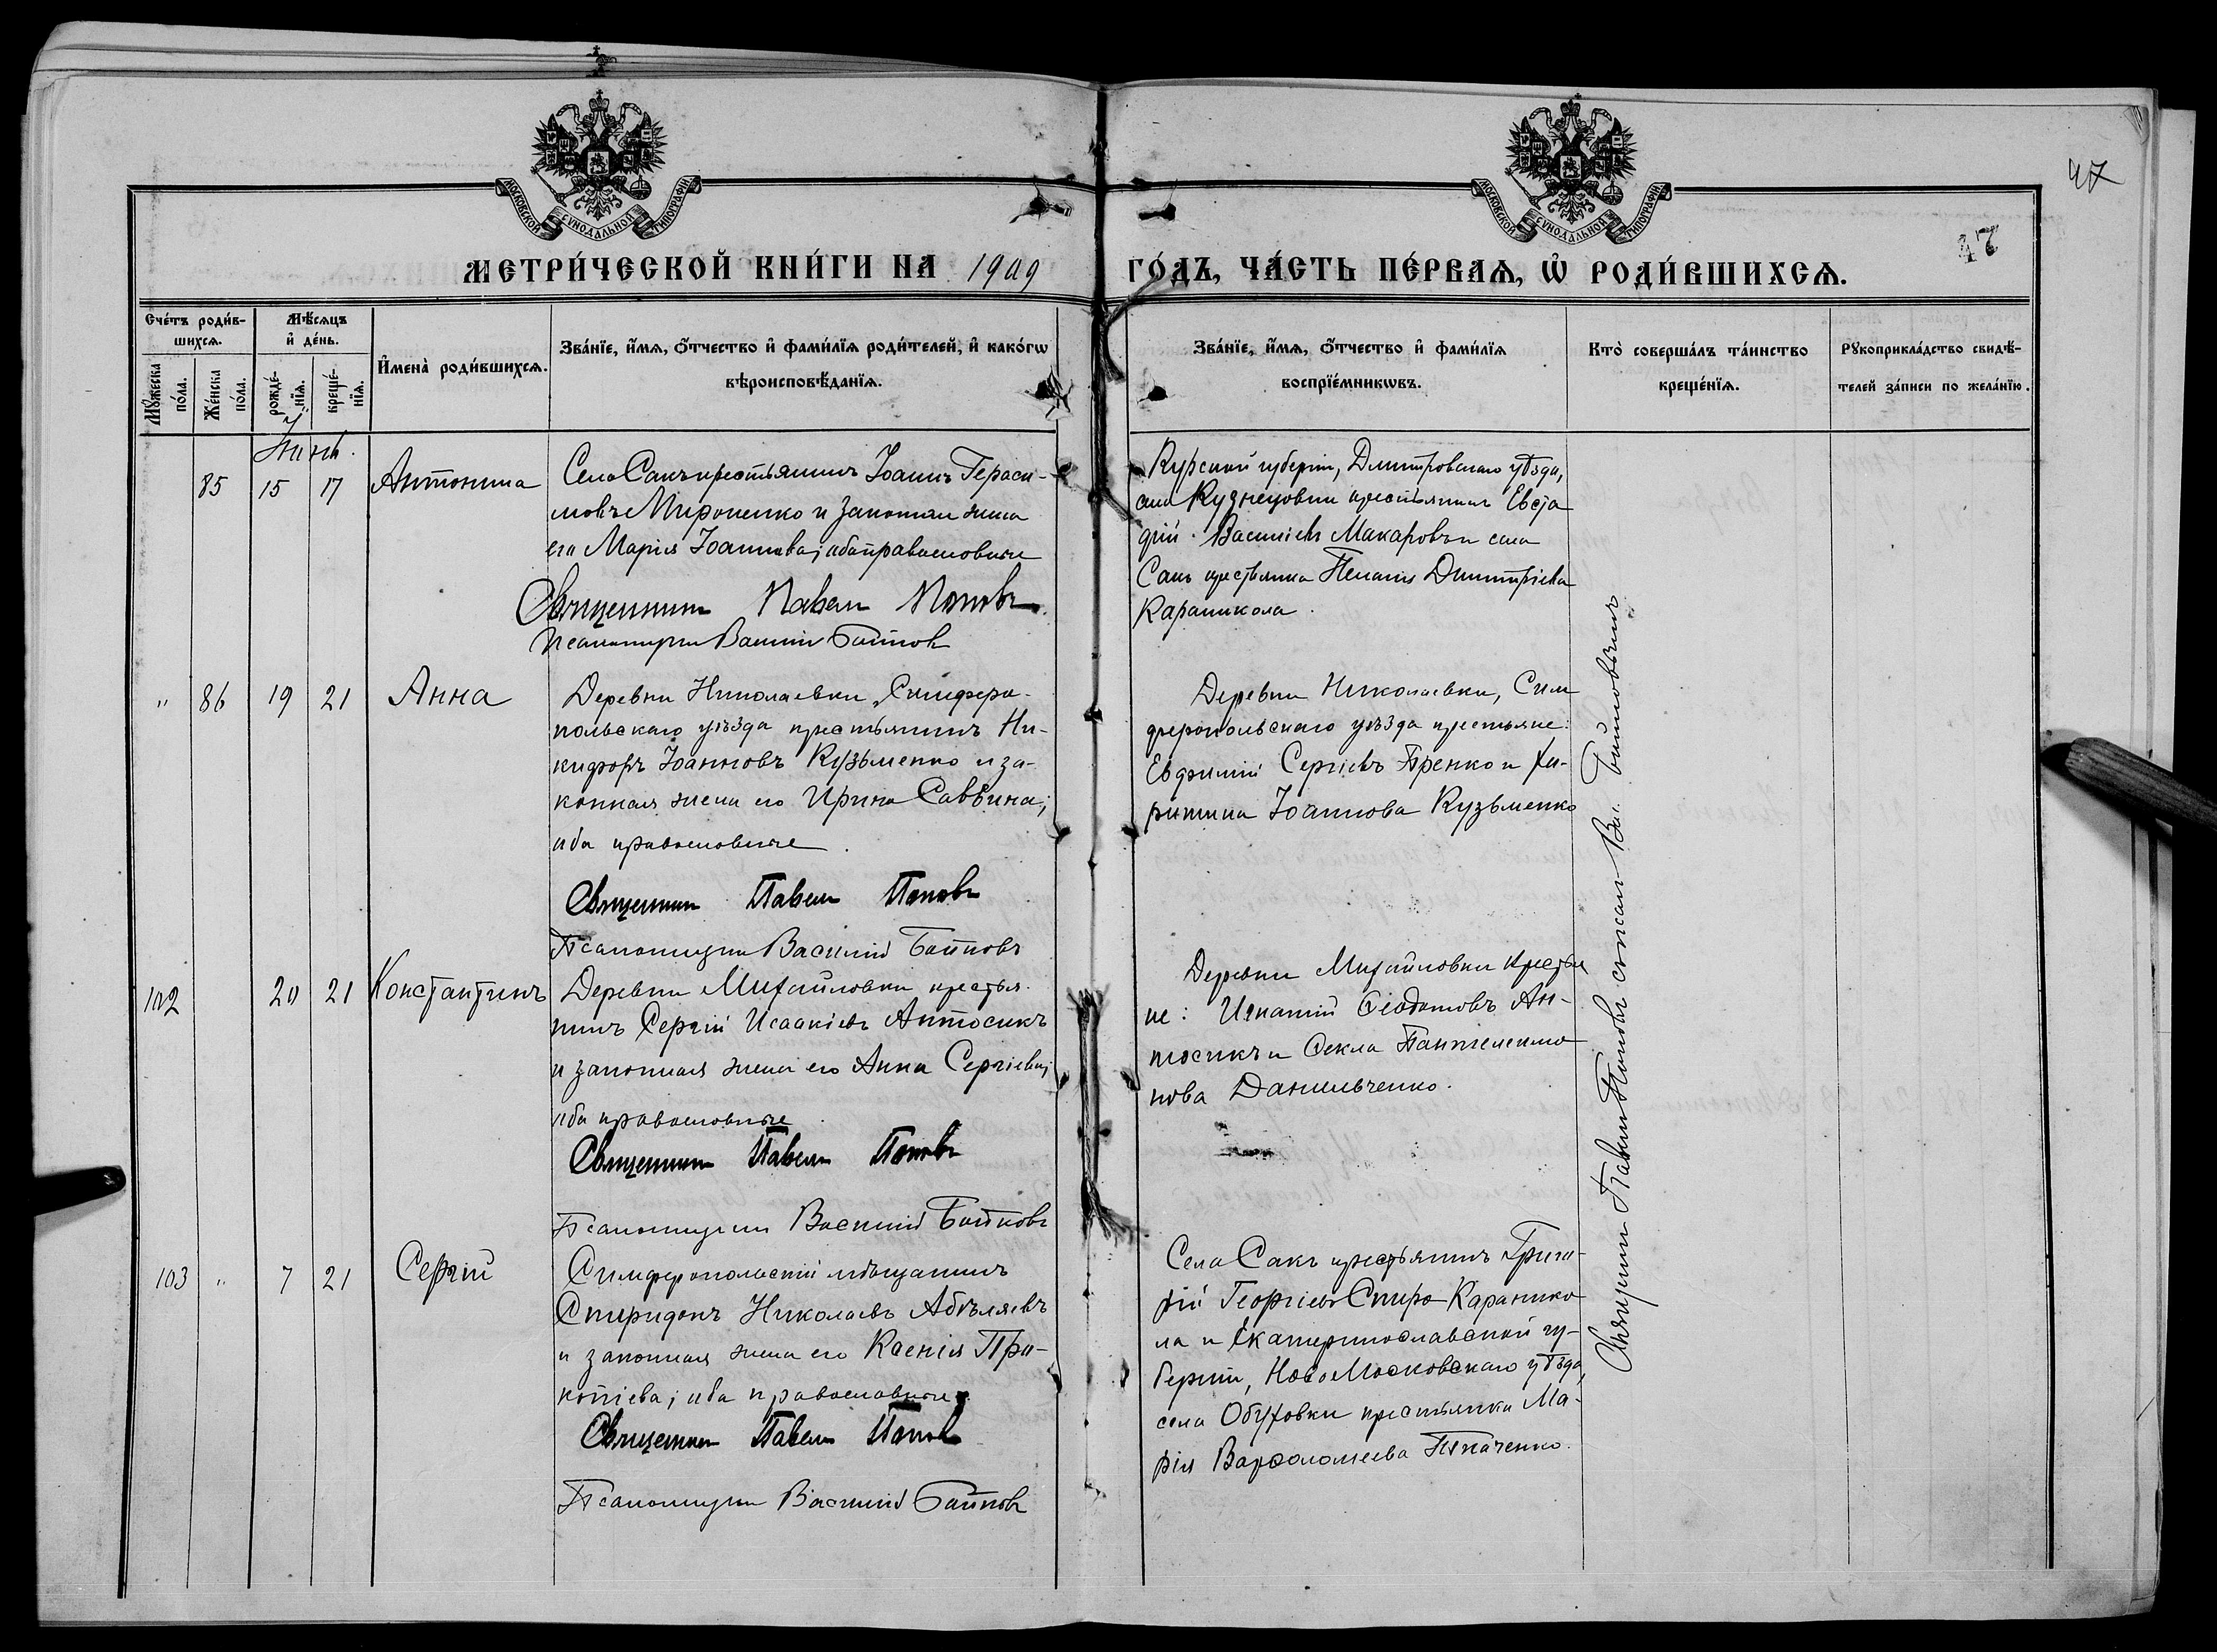 47
47
МОСКОВСКОЙ СѴНОДАЛЬНОЙ ТИПОГРАФІИ
МОСКОВСКОЙ СѴНОДАЛЬНОЙ ТИПОГРАФІИ
МЕТРИ́ЧЕСКОЙ КНИ́ГИ НА 1909 ГО́ДЪ, ЧА́СТЬ ПЕ́РВАѦ, Ѡ҆ РОДИ́ВШИХСѦ.
Сче́тъ роди́в-
шихсѧ.
Мꙋ́жеска по́ла.
Же́нска по́ла.
Мѣ́сѧцъ
и҆ де́нь.
рожде́-
нїѧ.
креще́-
нїѧ.
И҆мена̀ роди́вшихсѧ.
Зва́нїе, и҆́мѧ, ѻ҆́тчество и҆ фами́лїѧ роди́телей, и҆ како́гѡ
вѣроисповѣ́данїѧ.
Зва́нїе, и҆́мѧ, ѻ҆́тчество и҆ фами́лїѧ
воспрїе́мникѡвъ.
Кто̀ соверша́лъ та́инство
креще́нїѧ.
Рꙋкоприкла́дство свидѣ́-
телей за́писи по жела́нїю.
85 15 17 Антонина
Села Сакъ крестьянинъ Іоаннъ Гераси-
мовъ Мироненко и законная жена
его Марія Іоаннова; оба православные
Священникъ Павелъ Поповъ
Псаломщикъ Василій
Курской губерніи, Дмитровскаго уѣзда,
села Кузнецовки крестьянинъ Евста
фій Василіевъ Макаровъ и села
Сакъ крестьянка Пелагія Димитріева
Караникола.
" 86 19 21 Анна
Деревни Николаевки, Симферо-
польскаго уѣзда крестьянинъ Ни-
кифоръ Іоанновъ Кузьменко и за-
конная жена его Ирина Саввина;
оба православные.
Священникъ Павелъ Поповъ
Псаломщикъ Василій
Деревни Николаевки, Сим
феропольскаго уѣзда крестьяне:
Евфимій Сергіевъ и Ха-
ритина Іоаннова Кузьменко
102 20 21 Константинъ
Деревни Михайловки крестья-
нинъ Сергій Исаакіевъ Антосикъ
и законная жена его Анна Сергіева;
оба православные.
Священникъ Павелъ Поповъ
Псаломщикъ Василій
Деревни Михайловки крестья
не: Игнатій Ѳеодотовъ Ан-
тосикъ и Ѳекла Пантелеимо
нова Данильченко.
103 " 7 21 Сергій
Симферопольскій мѣщанинъ
Спиридонъ Николаевъ
и законная жена его Ксенія Про-
копіева; оба православные.
Священникъ Павелъ Поповъ
Псаломщикъ Василій
Села Сакъ крестьянинъ Григо-
рій Георгіевъ Спиро-Караникo
ла и Екатеринославской гу-
берніи, НовоМосковскаго уѣзда,
села Обуховки крестьянка Ма-
рія Варѳоломеева Ткаченко.
Священникъ Павелъ Поповъ съ псал. Вас.